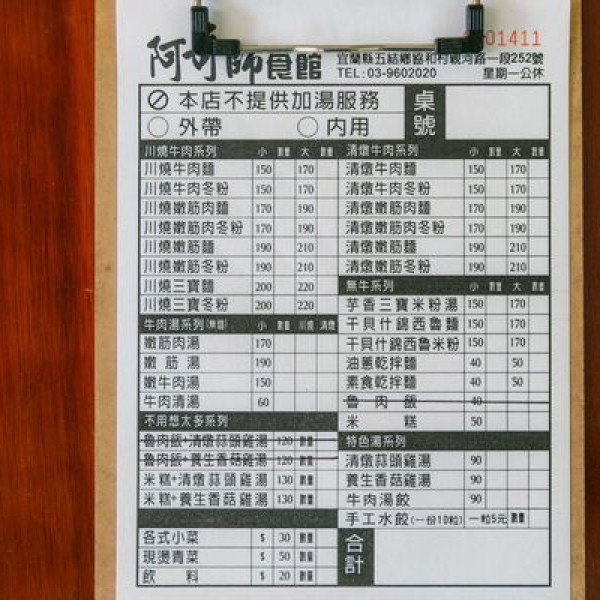 阿奇師食館
01411
宜蘭縣五結鄉協和村親河路一段252號
TEL: 03-9602020 星期一公休
本店不提供加湯服務
外帶 內用
桌號
川燒牛肉系列 小 數量 大 數量
川燒牛肉麵 150 170
川燒牛肉冬粉 150 170
川燒嫩筋肉麵 170 190
川燒嫩筋肉冬粉 170 190
川燒嫩筋麵 190 210
川燒嫩筋冬粉 190 210
川燒三寶麵 200 220
川燒三寶冬粉 200 220
牛肉湯系列(無麵) 小 數量 川燒 清燉
嫩筋肉湯 170
嫩筋湯 190
嫩牛肉湯 150
牛肉清湯 60
不用想太多系列
魯肉飯+清燉蒜頭雞湯 120 數量
魯肉飯+養生香菇雞湯 120 數量
米糕+清燉蒜頭雞湯 130 數量
米糕+養生香菇雞湯 130 數量
各式小菜 $ 30 數量
現燙青菜 $ 50 數量
飲料 $ 20 數量
清燉牛肉系列 小 數量 大 數量
清燉牛肉麵 150 170
清燉牛肉冬粉 150 170
清燉嫩筋肉麵 170 190
清燉嫩筋肉冬粉 170 190
清燉嫩筋麵 190 210
清燉嫩筋冬粉 190 210
無牛系列 小 數量 大 數量
芋香三寶米粉湯 150 170
干貝什錦西魯麵 150 170
干貝什錦西魯米粉 150 170
油蔥乾拌麵 40 50
素食乾拌麵 40 50
魯肉飯 40
米糕 50
特色湯系列
清燉蒜頭雞湯 90
養生香菇雞湯 90
牛肉湯餃 90
手工水餃(一份10粒) 一粒5元 數量
合計